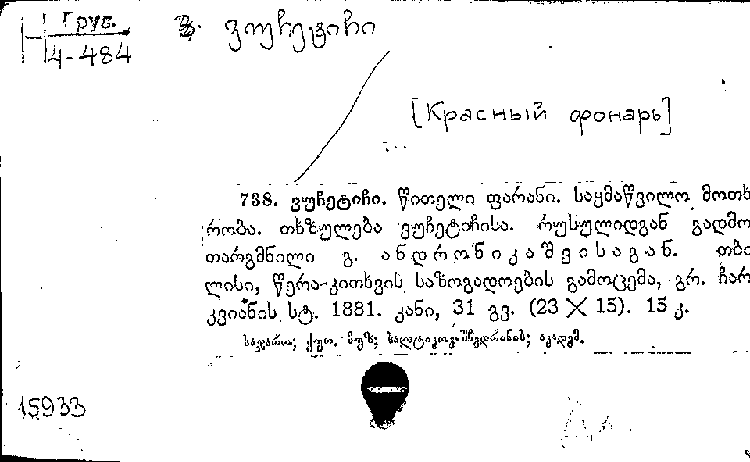 Груз.
4-484
ვუჩეტიჩი
[Красный фонарь]
738. ვუჩეტიჩი. წითელი ფარანი. საყმაწვილო მოთხ
რობა. თხზულება ვუჩეტიჩისა. რუსულიდგან გადმო
თარგმნილი გ. ანდრონიკაშვისაგან. თბი
ლისი, წერა-კითხვის საზოგადოების გამოცემა, გრ. ჩარ
კვიანის სტ. 1881. კანი, 31 გვ. (23 X 15). 15 კ.
საჯარო; ქუთ. მუზ; სალტიკოვ-შჩედრინის; აკადემ.
15933